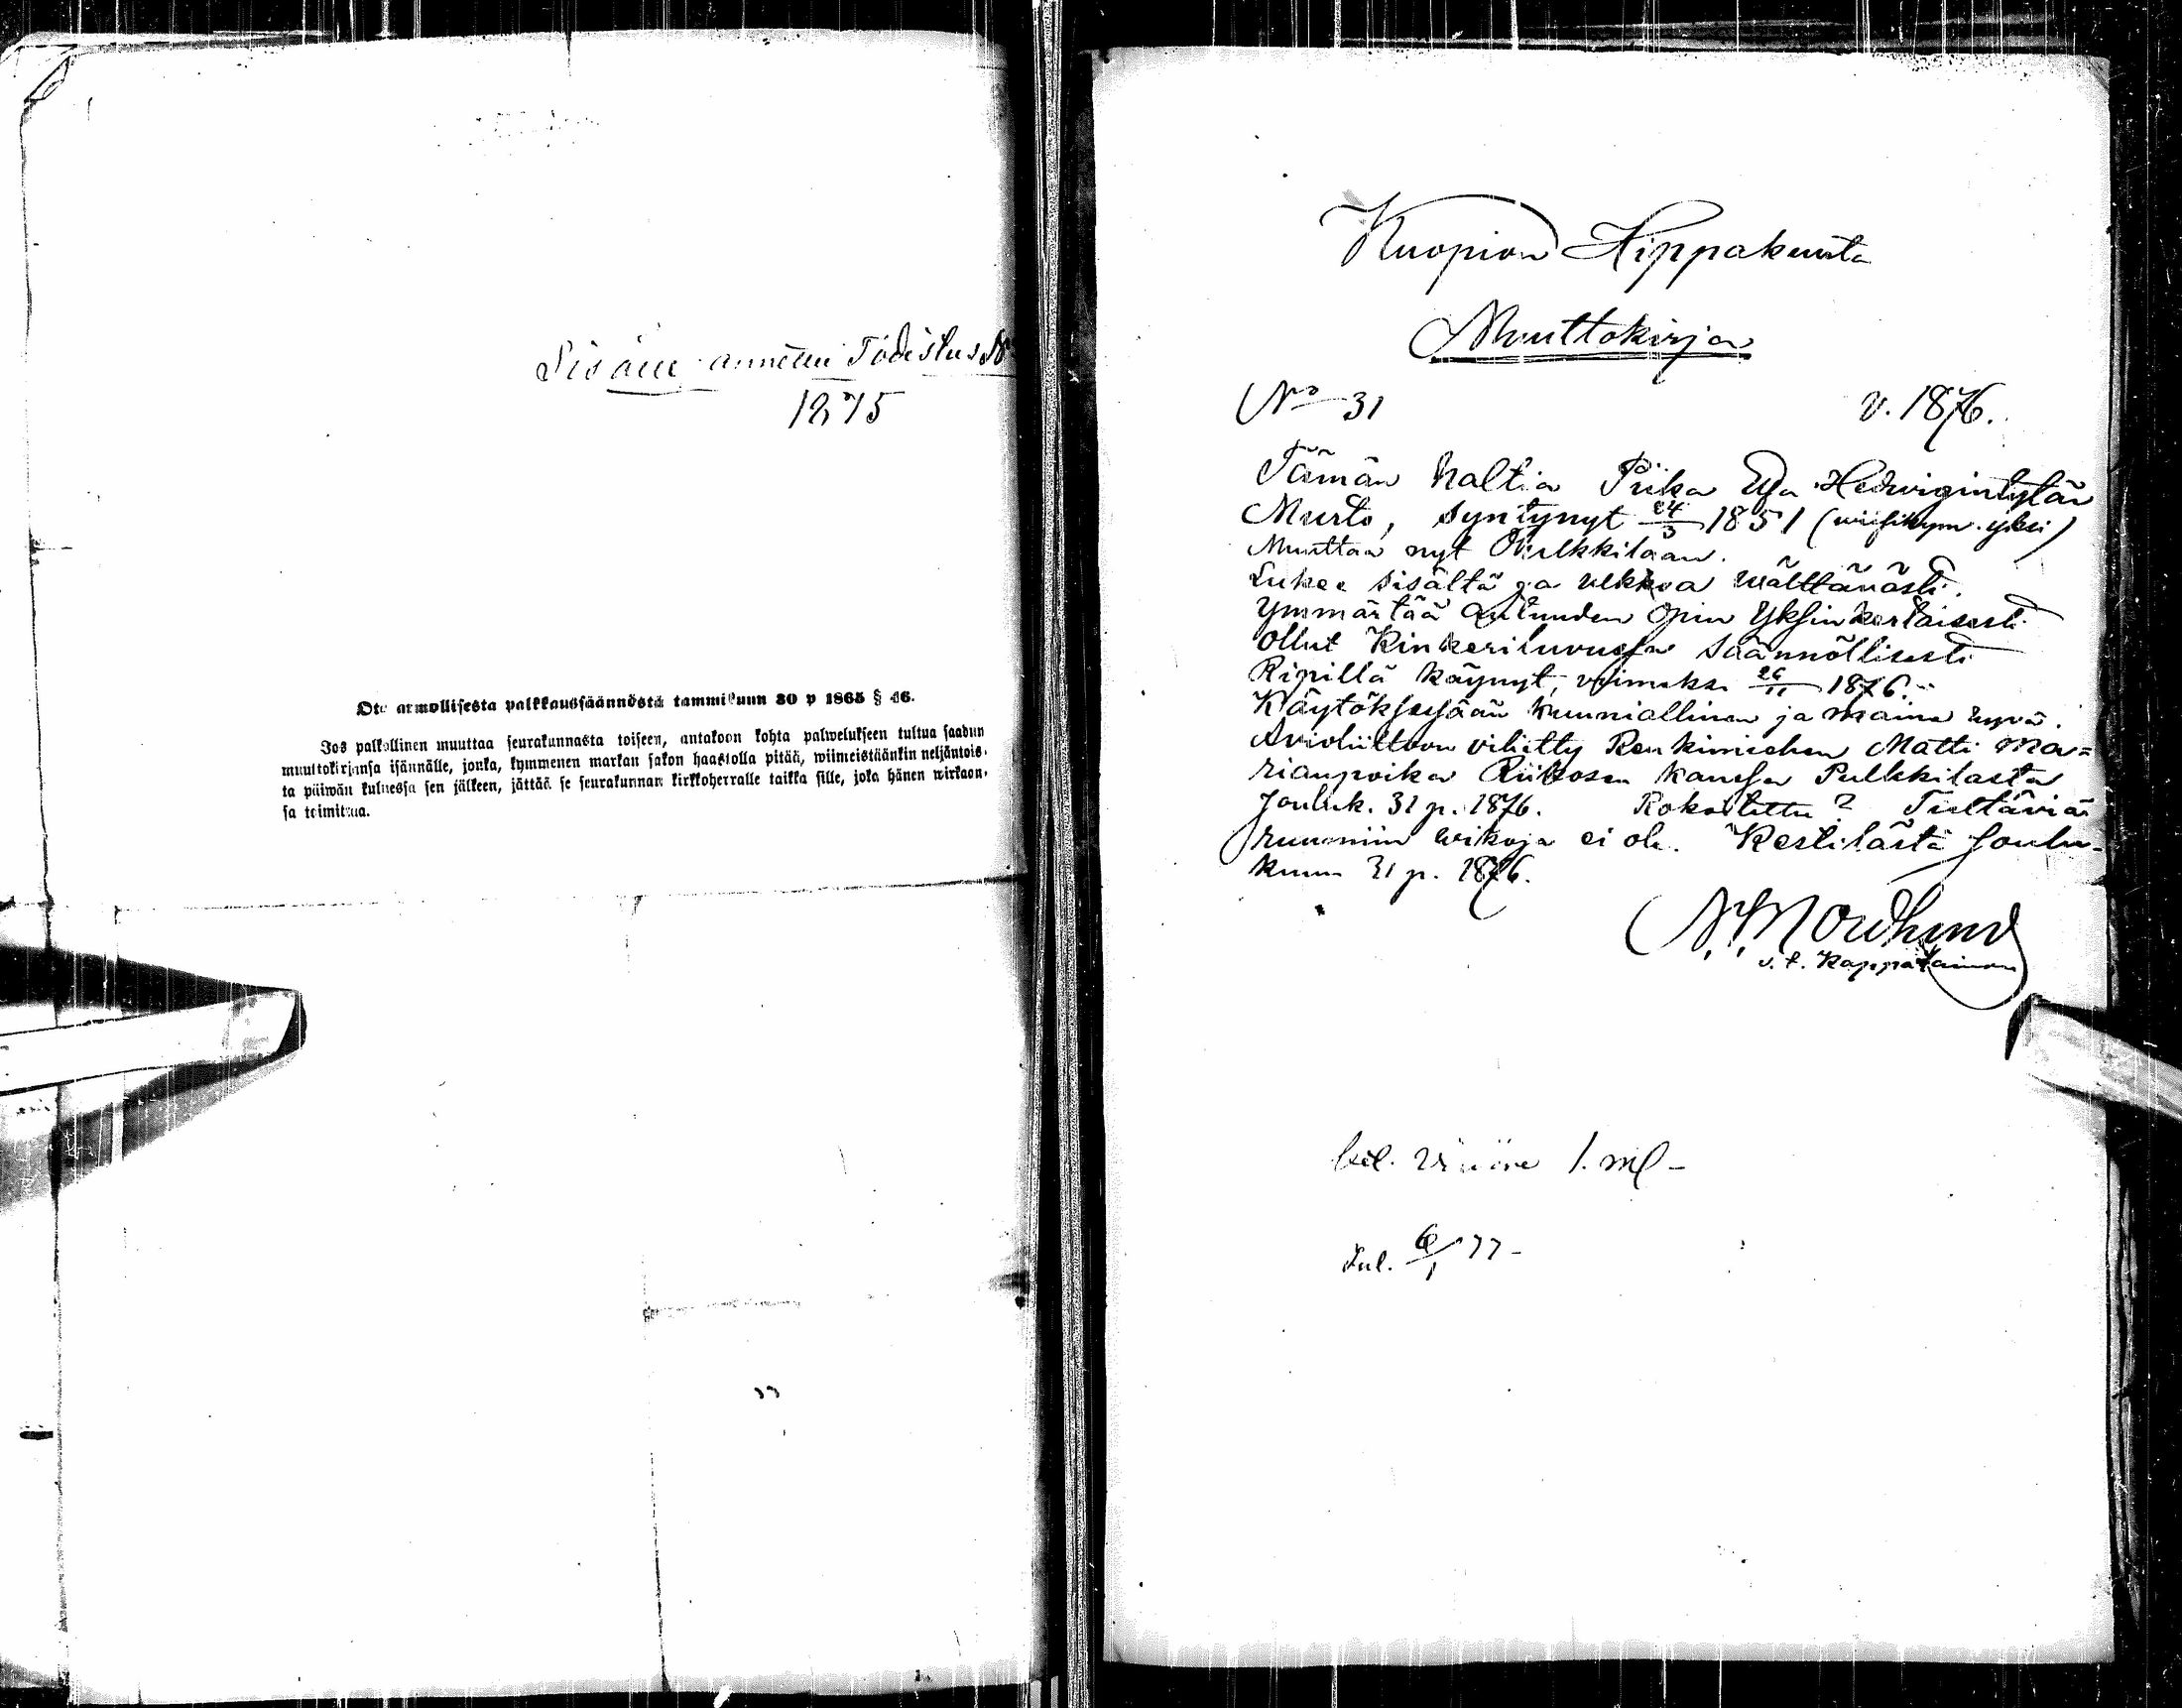 Sisään annettu Todistus N
1875
Ote armollisesta palkkaussäännöstä tammikuun 30 p 1865 § 46.
Jos palkollinen muuttaa seurakunnasta toiseen, antakoon kohta palwelukseen tultua saadun
muuttokirjansa isännälle, jonka, kymmenen markan sakon haastolla pitää, wiimeistäänkin neljäntois-
ta päiwän kuluessa sen jälkeen, jättää se seurakunnan kirkkoherralle taikka sille, joka hänen wirkaan-
sa toimittaa.
Kuopion Hippakunta
Muuttokirja
No 31 v. 1876.
Tämän haltia Piika Hedwigintytär
Murto, syntynyt 24/3 1851 (wiisikym. yksi)
Muuttaa nyt Pulkkilaan.
Lukee sisältä ja ulkoa wälttäwästi.
Ymmärtää autuuden opin Yksinkertaisesti
Ollut Kinkeriluvussa Säännöllisesti
Ripillä käynyt, viimeksi 26/11 1876.
Käytöksessään kunniallinen ja maine hyvä.
Avioliittoon vihitty Renkimiehen Matti Ma=
rianpoika Riikosen kanssa Pulkkilasta
Jouluk. 31 p. 1876. Rokotettu? Tiettäviä
ruumiin wikoja ei ole. Kestilästä Joulu-
kuun 31 p. 1876.
Nordlund
v. t. Kappalainen
1. ml -
Tul. 6/1 77 -